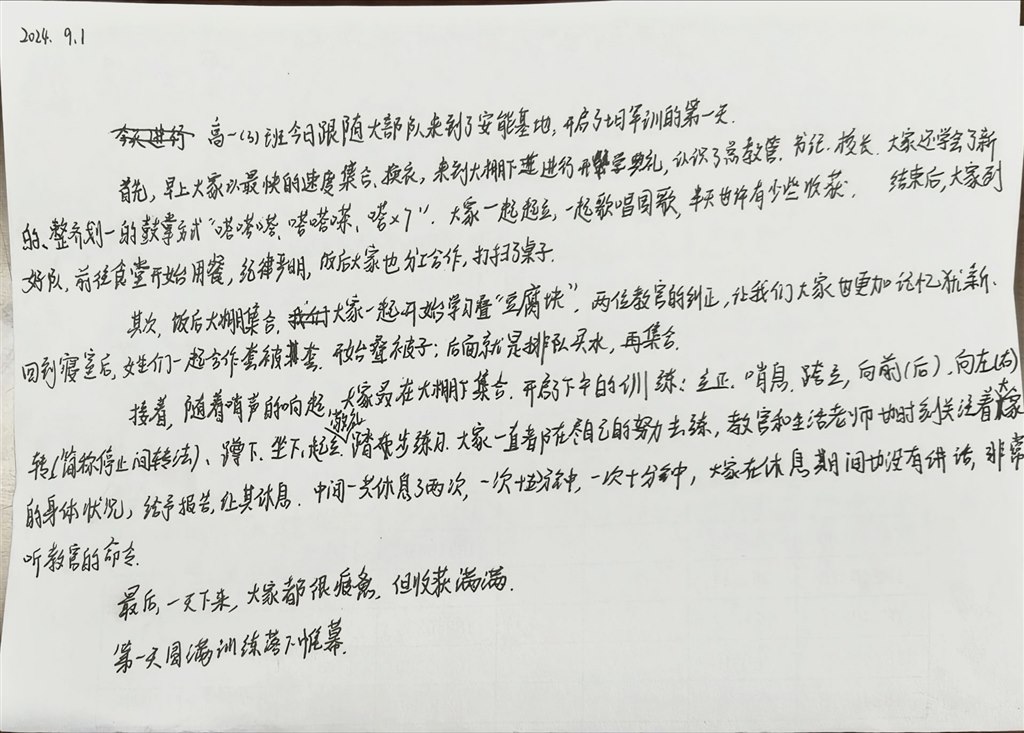 2024. 9.1
高一(3)班今日跟随大部队来到了安能基地,开启了七日军训的第一天.
首先,早上大家以最快的速度集合、换衣,来到大棚下进行开学典礼,认识了总教官、书记、校长.大家还学会了新
的、整齐划一的鼓掌方式“嗒嗒嗒、嗒嗒嗒、嗒×7”.大家一起起立,一起歌唱国歌,半天也许有少些收获. 结束后,大家列
好队,前往食堂开始用餐,纪律严明,饭后大家也分工合作,打扫了桌子.
其次,饭后大棚集合,大家一起开始学习叠“豆腐块”.两位教官的纠正,让我们大家也更加记忆犹新.
回到寝室后,女生们一起合作套被套.开始叠被子;后面就是排队买水,再集合.
接着,随着哨声的响起,大家又在大棚下集合.开启下午的训练:立正、稍息、跨立,向前(后)、向左(右)
转(简称停止间转法)、蹲下、坐下、起立、敬礼、踏步练习.大家一直都在尽自己的努力去练,教官和生活老师也时刻关注着大家
的身体状况,给予报告,让其休息.中间一共休息了两次,一次十五分钟,一次十分钟,大家在休息期间也没有讲话,非常
听教官的命令.
最后,一天下来,大家都很疲惫,但收获满满.
第一天圆满训练落下帷幕.